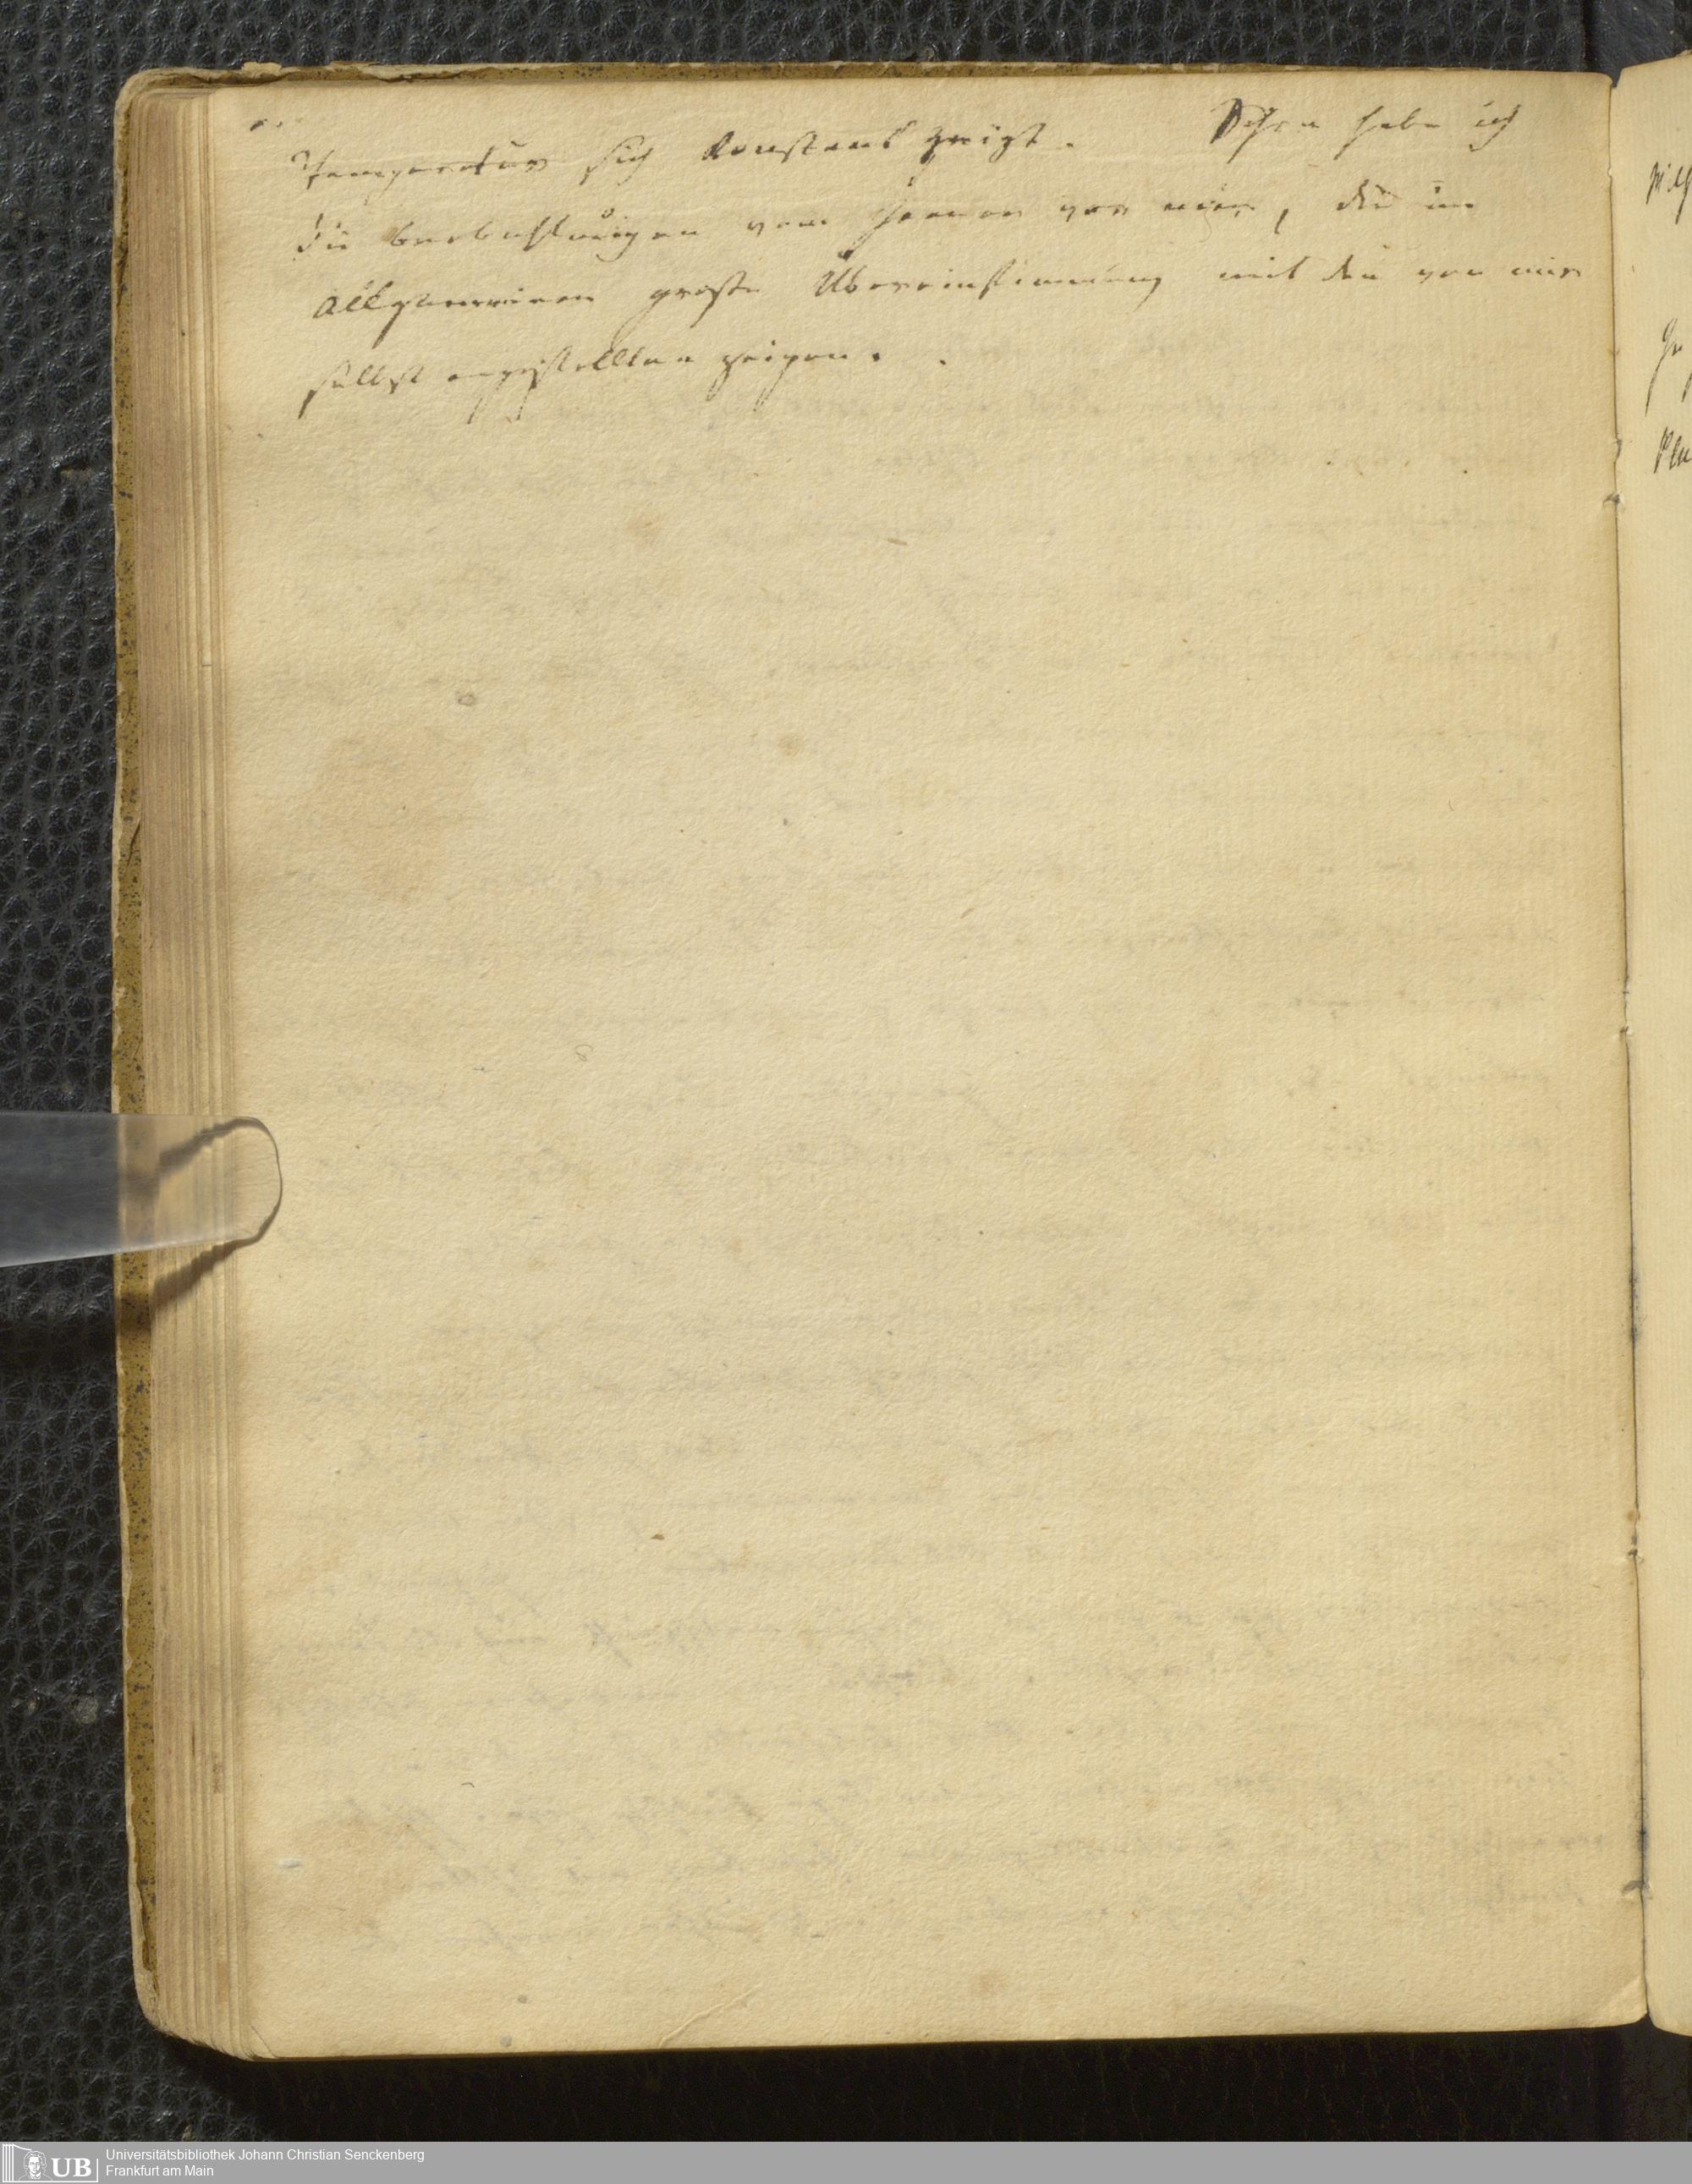 Temperatur sich konstant zeigt. Schon habe ich
die beobachtungen vom Januar vor mir, die im
allgemeinen große Übereinstimmung mit den von mir
selbst angestellten zeigen.
Universitätsbibliothek Johann Christian Senckenberg
Frankfurt am Main
UB